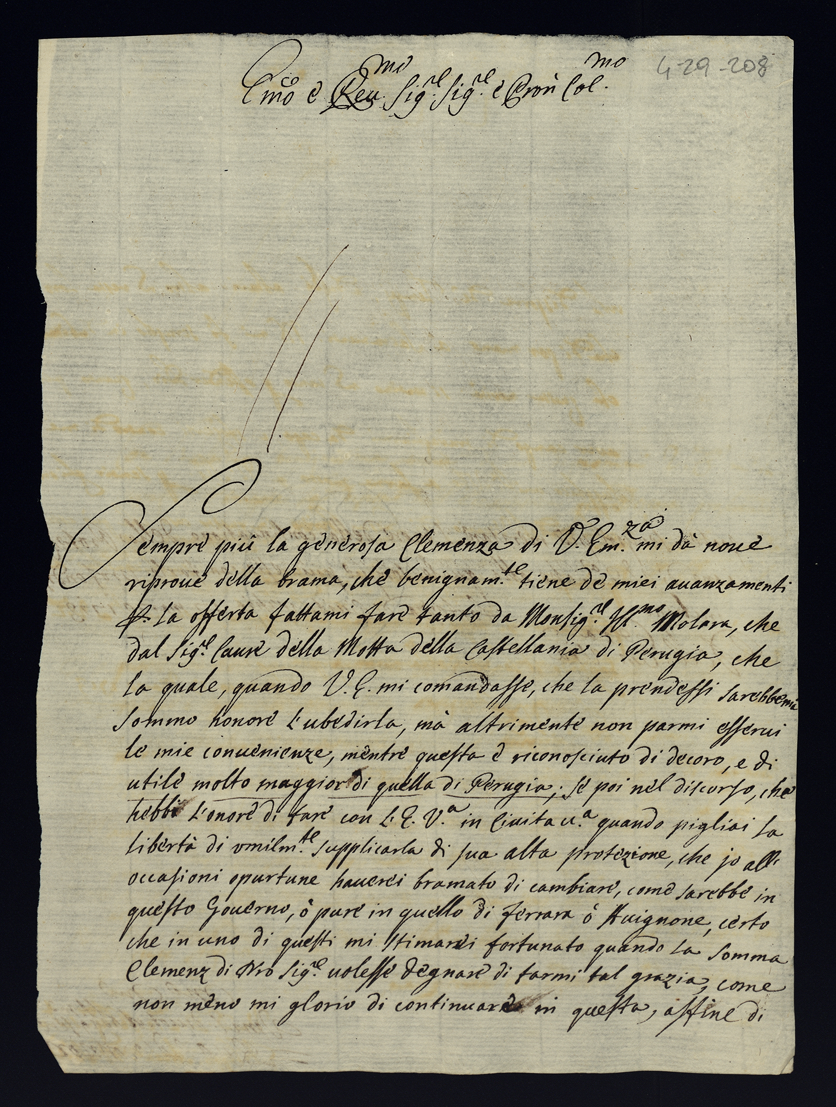 4-29-208
Emo è Reu.mo Sig.re Sig.re è Pron Col.mo
Sempre più la generosa Clemenza di V. Em.za mi dà noue
riproue della brama, che benignam.te tiene de miei auanzamenti
la offerta fattami fare tanto da Monsig.re Ill.mo Molara, che
dal Sig.re Caure della Motta della Castellania di Perugia, che
la quale, quando V. E. mi comandasse, che la prendessi sarebbemi
sommo honore l'ubedirla, mà altrimente non parmi esserui
le mie conuenienze, mentre questa è riconosciuto di decoro, e di
utile molto maggior di quella di Perugia; se poi nel discorso, che
hebbi l'onore di fare con l'E. V.a in Ciuita u.a quando pigliai la
libertà di vmilm.te supplicarla di sua alta protezione, che jo all'
occasioni opurtune hauerei bramato di cambiare, come sarebbe in
questo Gouerno, ò pure in quello di Ferrara ò Auignone, certo
che in uno di questi mi stimarei fortunato quando la somma
Clemenz di Nro Sig.re uolesse degnare di farmi tal grazia, come
non meno mi glorio di continuare in questa, affine di